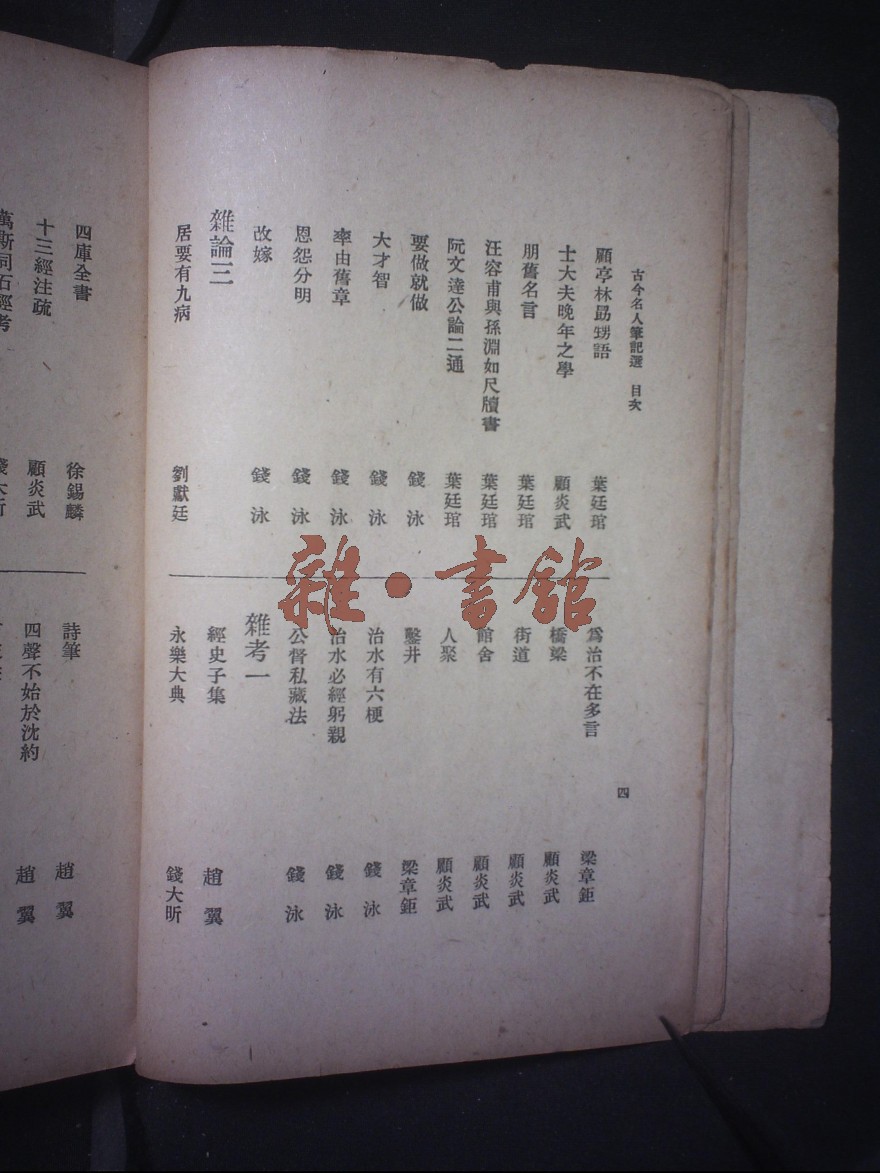 古今名人筆記選　目次
顧亭林勗甥語　葉廷琯
士大夫晚年之學　顧炎武
朋舊名言　葉廷琯
汪容甫與孫淵如尺牘書　葉廷琯
阮文達公論二通　葉廷琯
要做就做　錢泳
大才智　錢泳
率由舊章　錢泳
恩怨分明　錢泳
改嫁　錢泳
雜論三
居要有九病　劉獻廷
為治不在多言　梁章鉅
橋梁　顧炎武
街道　顧炎武
館舍　顧炎武
人聚　顧炎武
鑿井　梁章鉅
治水有六梗　錢泳
治水必經躬親　錢泳
公督私藏法　錢泳
雜考一
經史子集　趙翼
永樂大典　錢大昕
四
四庫全書　徐錫麟
十三經注疏　顧炎武
萬斯同石經考　錢大昕
詩筆　趙翼
四聲不始於沈約　趙翼
雜·書館